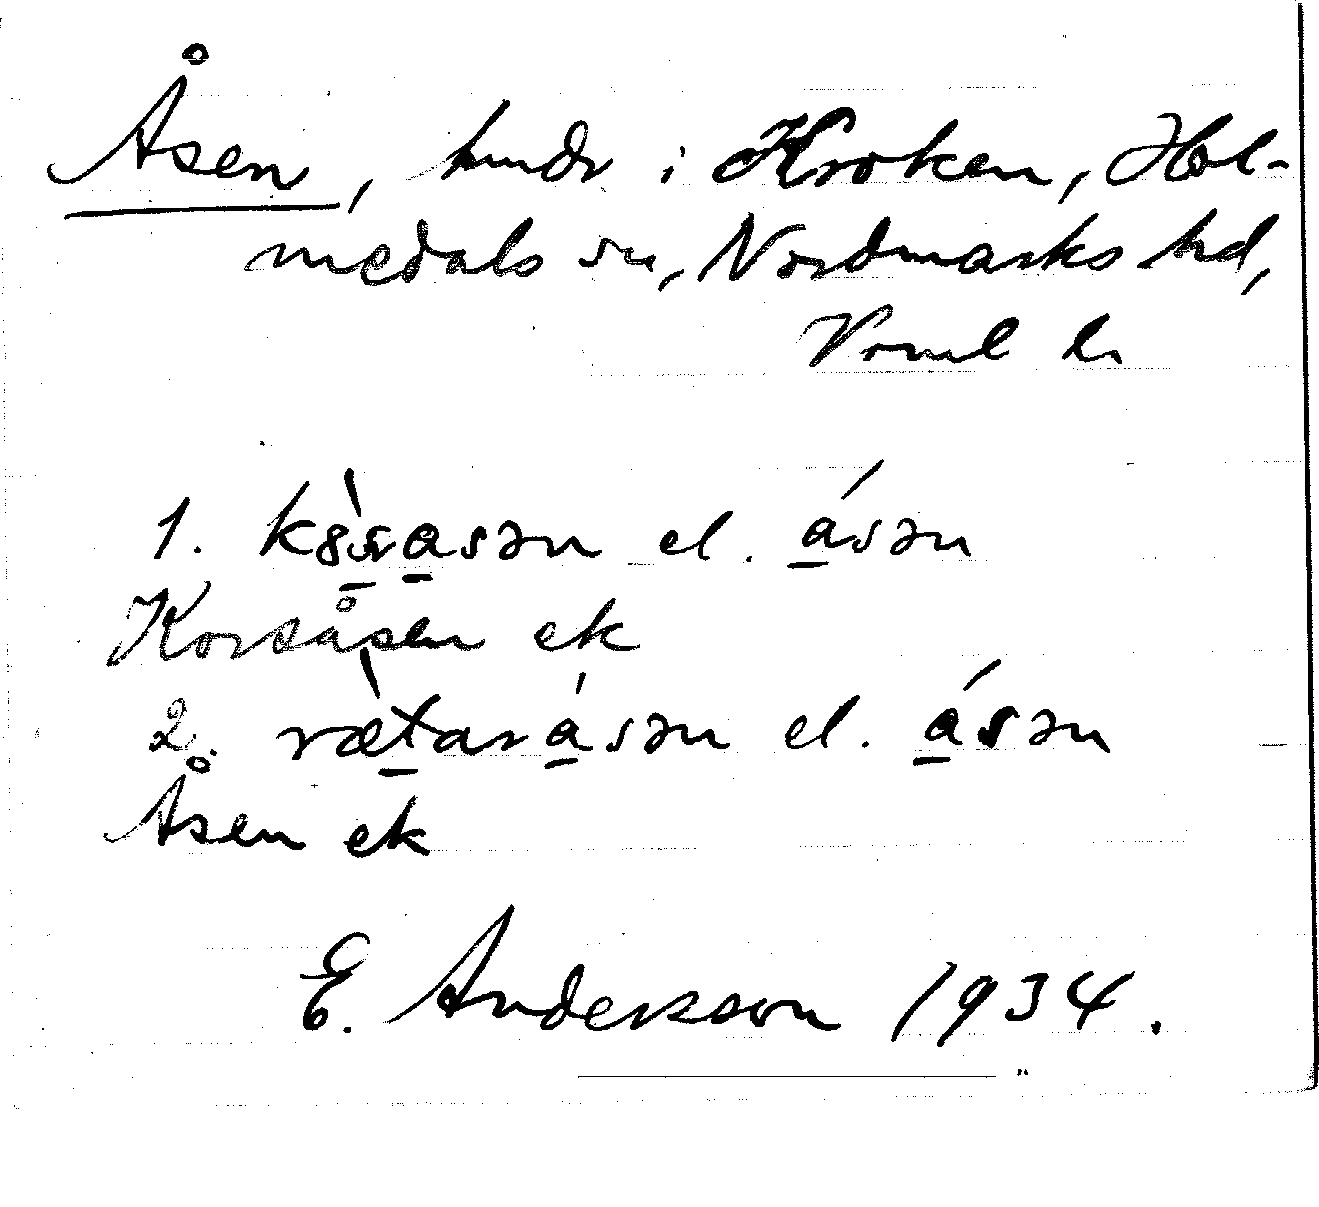 Åsen, hmdr i Kroken, Hol-
medals sn, Nordmarks hd,
Vrml l.
1. k er el. åsən
Korsåsen ek
2. rætaråsən el. åsən
Åsen ek
E. Andersson 1934.